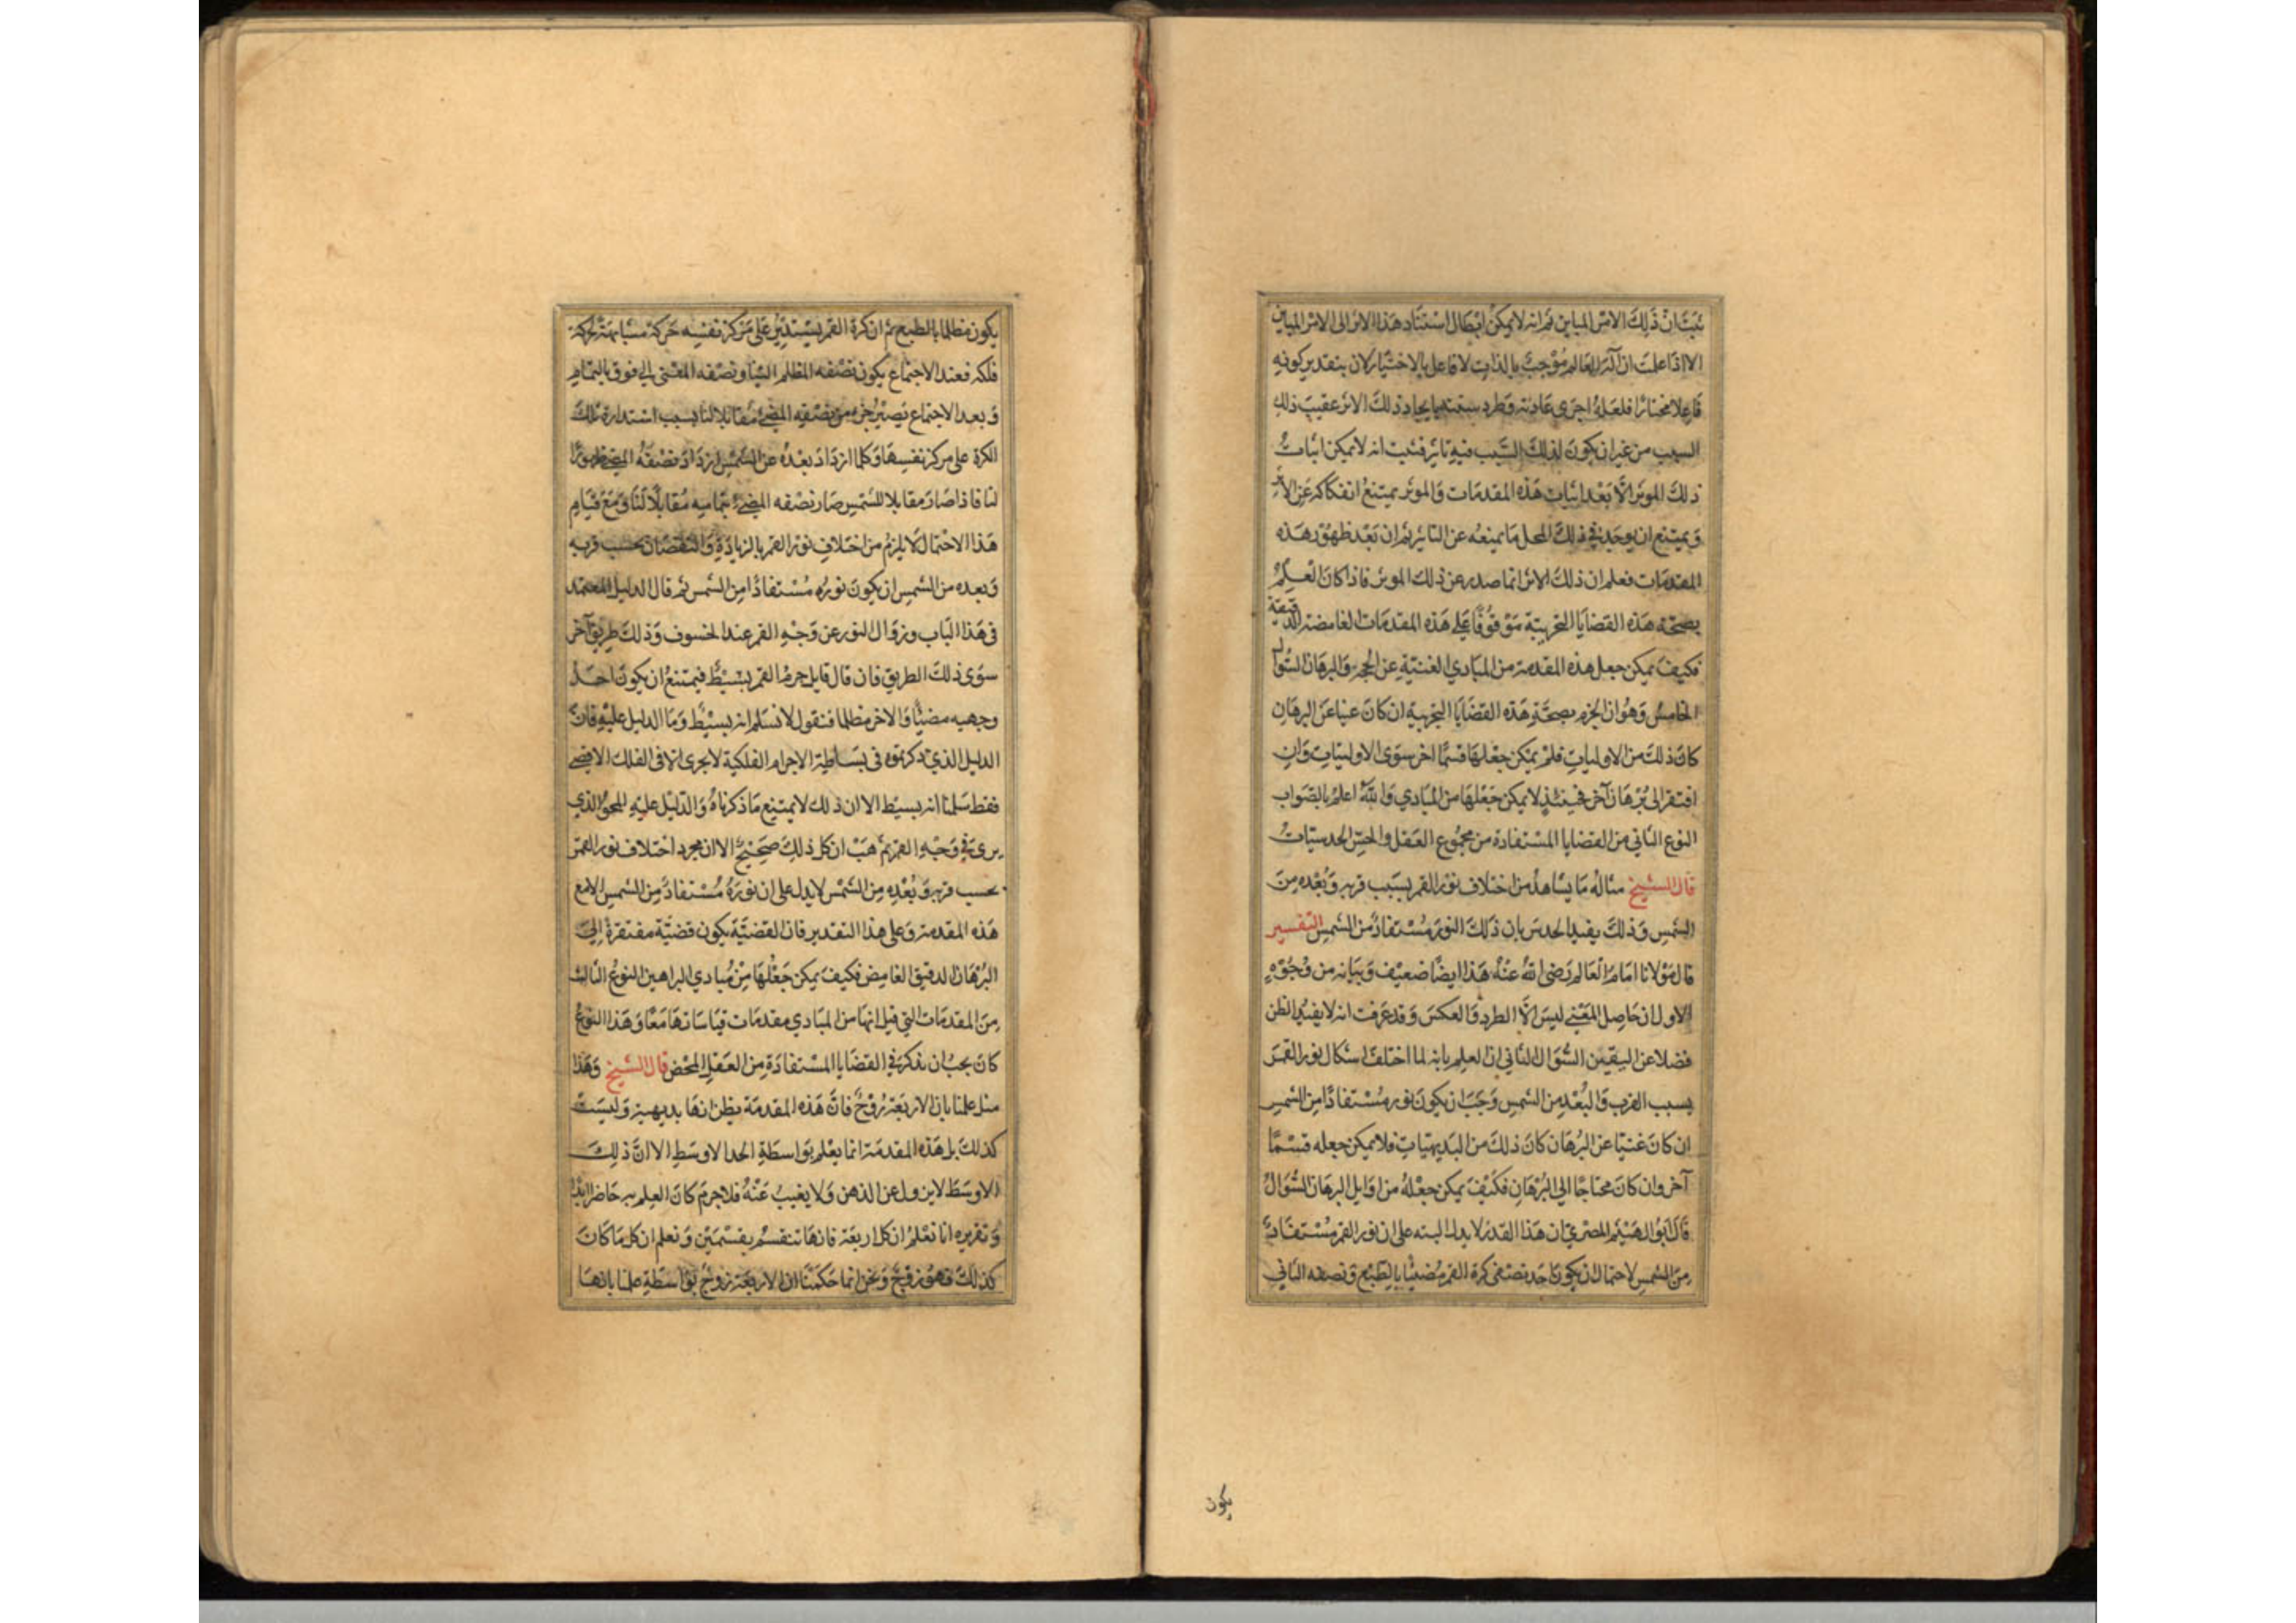 ثبت ان ذلك الامر المباين ثم انه لا يمكن ابطال استناد هذا الاثر الى الامر المباين
الا اذا علمت ان آله العالم موجب بالذات لا فاعل بالاختيار لان بتقدير كونه
فاعلا مختارا فلعله اجرى عادته وطرد سنته بايجاد ذلك الاثر عقيب ذلك
السبب من غير ان يكون لذلك السبب فيه تاثير فثبت انه لا يمكن اثبات
ذلك الموثر الا بعد اثبات هذه المقدمات والموثر يمتنع انفكاكه عن الاثر
ويمتنع ان يوجد في ذلك المحل ما يمنعه عن التاثير ثم ان بعد ظهور هذه
المقدمات فعلم ان ذلك الاثر انما صدر عن ذلك الموثر فاذا كان العلم
بصحة هذه القضايا التجريبية موقوفا على هذه المقدمات الغامضة الدقيقة
فكيف يمكن جعل هذه المقدمة من المبادي الغنية عن الحجة والبرهان السوال
الخامس وهو ان الجزم بصحة هذه القضايا التجربية ان كان غنيا عن البرهان
كان ذلك من الاوليات فلم يمكن جعلها قسما اخر سوى الاوليات وان
افتقر الى برهان آخر فحينئذ لا يمكن جعلها من المبادي والله اعلم بالصواب
النوع الثاني من القضايا المستفادة من مجموع العقل والحس الحدسيات
قال الشيخ مثاله ما يشاهد من اختلاف نور القمر بسبب قربه وبعده من
الشمس وذلك يفيد الحدس بان ذلك النور مستفاد من الشمس التفسير
قال مولانا امام العالم رضى الله عنه هذا ايضا ضعيف وبيانه من وجوه
الاول ان حاصل المعنى ليس الا الطرد والعكس وقد عرفت انه لا يفيد الظن
فضلا عن اليقين السوال الثاني ان العلم بانه لما اختلف اشكال نور القمر
بسبب القرب والبعد من الشمس وجب ان يكون نوره مستفادا من الشمس
ان كان غنيا عن البرهان كان ذلك من البديهيات فلا يمكن جعله قسما
آخر وان كان محتاجا الى البرهان فكيف يمكن جعله من اوايل البرهان السوال
قال ابو الهيثم المصري ان هذا القدر لا يدل البته على ان نور القمر مستفاد
من الشمس لاحتمال ان يكون احد نصفي كرة القمر مضيئا بالطبع ونصفه الثاني
يكون
يكون مظلما بالطبع ثم ان كرة القمر يستدير على مركز نفسه حركة مشابهة لحركة
فلكه فعند الاجتماع يكون نصفه المظلم الينا ونصفه المضى الى فوق بالتمام
وبعد الاجتماع يصير جزء من نصفه المضئ مقابلا لنا بسبب استدارة تلك
الكرة على مركز نفسها وكلما ازداد بعده عن الشمس ازداد نصفه المضئ ظهورا
لنا فاذا صار مقابلا للشمس صار نصفه المضئ بتمامه مقابلا لنا ومع قيام
هذا الاحتمال لا يلزم من اختلاف نور القمر بالزيادة والنقصان بحسب قربه
وبعده من الشمس ان يكون نوره مستفادا من الشمس ثم قال الدليل المعتمد
في هذا الباب وزوال النور عن وجه القمر عند الخسوف وذلك طريق آخر
سوى ذلك الطريق فان قال قايل جرم القمر بسيط فيمتنع ان يكون احد
وجهيه مضيئا والاخر مظلما فنقول لا نسلم انه بسيط وما الدليل عليه فان
الدليل الذي ذكرتموه في بساطة الاجرام الفلكية لا يجرى الا في الفلك الاقصى
فقط سلمنا انه بسيط الا ان ذلك لا يمتنع ما ذكرناه والدليل عليه المحو الذي
يرى في وجه القمر ثم هب ان كل ذلك صحيح الا ان مجرد اختلاف نور القمر
بحسب قربه وبعده من الشمس لا يدل على ان نوره مستفاد من الشمس الا مع
هذه المقدمة وعلى هذا التقدير فان القضية يكون قضية مفتقرة الى
البرهان الدقيق الغامض فكيف يمكن جعلها من مبادي البراهين النوع الثالث
من المقدمات التي قيل انها من المبادي مقدمات قياساتها معا وهذا النوع
كان يجب ان نذكره في القضايا المستفادة من العقل المحض قال الشيخ وهذا
مثل علمنا بان الاربعة زوج فان هذه المقدمة يظن انها بديهية وليست
كذلك بل هذه المقدمة انما يعلم بواسطة الحد الاوسط الا ان ذلك
الاوسط لا يزول عن الذهن ولا يغيب عنه فلا جرم كان العلم به حاضرا ابدا
وتقريره انا نعلم ان كل اربعة فانها تنقسم بقسمين ونعلم ان كل ما كان
كذلك فهو زوج ونحن انما حكمنا ان الاربعة زوج بواسطة علمنا بانها